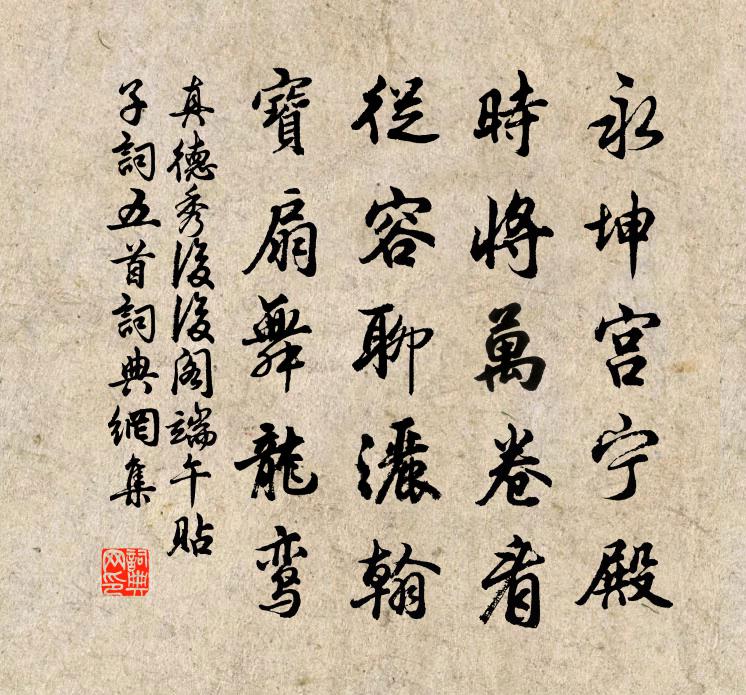 永坤宫宁殿
時將萬卷看
從容聊灑翰
寶扇舞龍鸾
真德秀後後阁端午貼
子詞五首詞典網集
詞典
网印